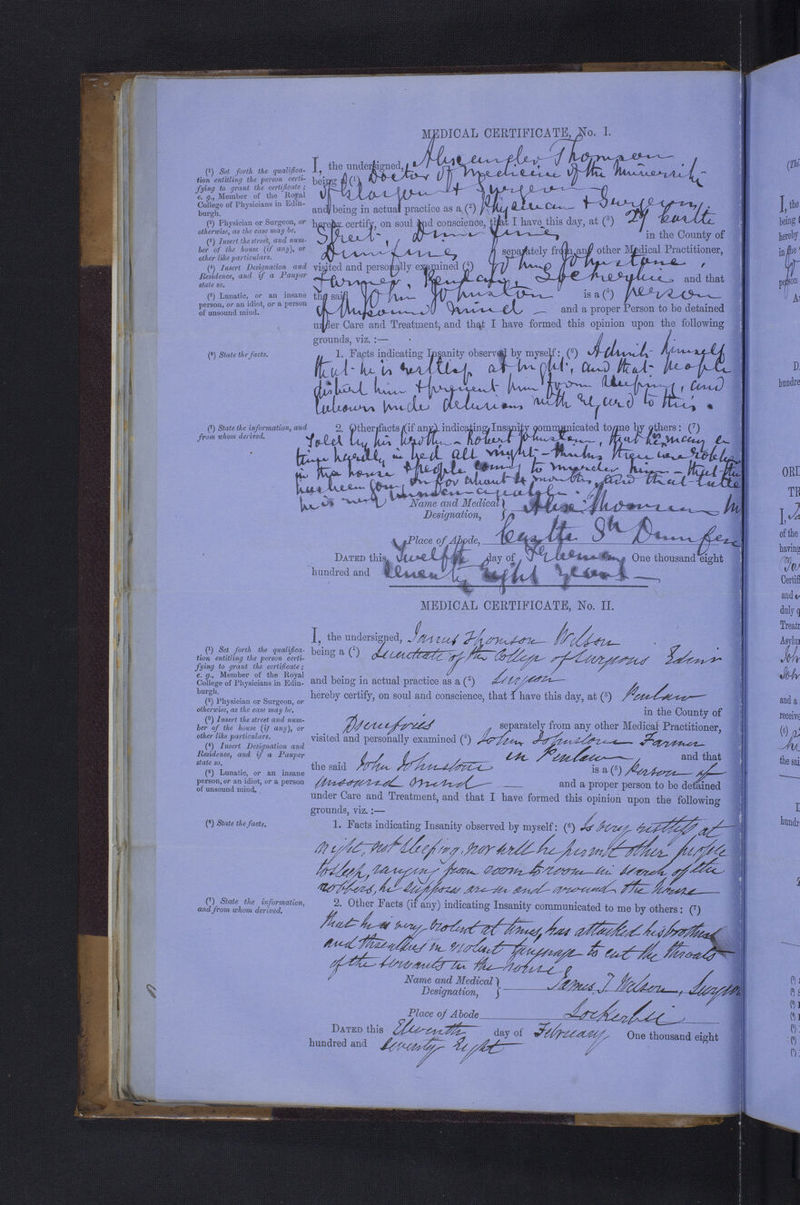 MEDICAL CERTIFICATE, No. I.
(¹) Set forth the qualifica-
tion entitling the person certi-
fying to grant the certificate;
e. g., Member of the Royal
College of Physicians in Edin-
burgh.
(²) Physician or Surgeon, or
otherwise, as the case may be.
(³) Insert the street, and num-
ber of the house (if any), or
other like particulars.
(⁴) Insert Designation and
Residence, and if a Pauper
state so.
(⁵) Lunatic, or an insane
person, or an idiot, or a person
of unsound mind.
I, the undersigned, Alexander Thomson
being a (¹) Doctor of Medicine of the University
of Glasgow & Surgeon
and being in actual practice as a (²) Physician & Surgeon
hereby certify, on soul and conscience, that I have this day, at (³) 29 Castle
Street, Dumfries in the County of
Dumfries separately from any other Medical Practitioner,
visited and personally examined (⁴) John Johnstone
Farmer, Penlaw, Lockerbie and that
the said John Johnston is a (⁵) person
of Unsound Mind and a proper Person to be detained
under Care and Treatment, and that I have formed this opinion upon the following
grounds, viz. :—
(⁶) State the facts.
1. Facts indicating Insanity observed by myself: (⁶) Admits himself
that he is restless at night, and that people
disturb him & prevent him from sleeping, and
labours under delusions with regard to this.
(⁷) State the information, and
from whom derived.
2. Other facts (if any) indicating Insanity communicated to me by others: (⁷)
Told by his brother - Robert Johnston, that he many a
time hardly in bed all night - thinks there are robbers
in the house & people coming to murder him - that this
has been going on for about months, and that
he is very
Name and Medical
Designation, Alex Thomson M
Place of Abode, Castle St Dumfries
DATED this Twelfth day of February One thousand eight
hundred and Seventy Eight years
MEDICAL CERTIFICATE, No. II.
(¹) Set forth the qualifica-
tion entitling the person certi-
fying to grant the certificate;
e. g., Member of the Royal
College of Physicians in Edin-
burgh.
(²) Physician or Surgeon, or
otherwise, as the case may be.
(³) Insert the street and num-
ber of the house (if any), or
other like particulars.
(⁴) Insert Designation and
Residence, and if a Pauper
state so.
(⁵) Lunatic, or an insane
person, or an idiot, or a person
of unsound mind.
I, the undersigned, James Thomson Wilson
being a (¹) Licentiate of the College of Surgeons Edinr
and being in actual practice as a (²) Surgeon
hereby certify, on soul and conscience, that I have this day, at (³) Penlaw
in the County of
Dumfries separately from any other Medical Practitioner,
visited and personally examined (⁴) John Johnstone Farmer
in Penlaw and that
the said John Johnstone is a (⁵) Person of
unsound mind and a proper person to be detained
under Care and Treatment, and that I have formed this opinion upon the following
grounds, viz. :—
(⁶) State the facts.
1. Facts indicating Insanity observed by myself: (⁶) Is very restless at
night, not sleeping, nor will he permit other people
to sleep, ranging from room to room in search of the
robbers, he supposes are in and around the house
(⁷) State the information,
and from whom derived.
2. Other Facts (if any) indicating Insanity communicated to me by others: (⁷)
That he is very violent at times, has attacked his brothers
and threatens in violent language to cut the throats
of the servants in the house
Name and Medical
Designation, James T. Wilson, Surgeon
Place of Abode Lockerbie
DATED this Eleventh day of February One thousand eight
hundred and Seventy Eight